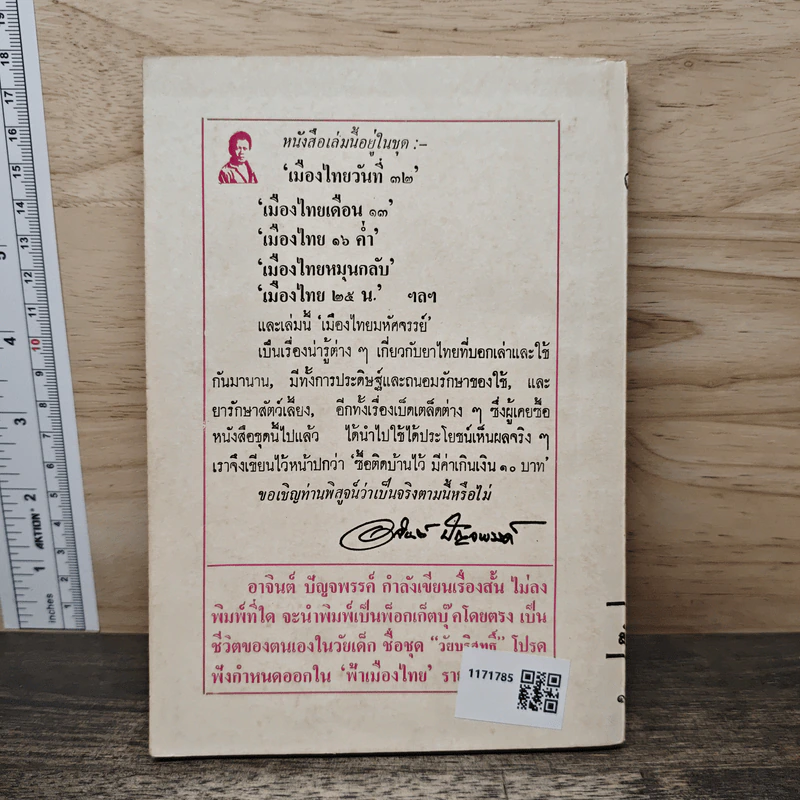 หนังสือเล่มนี้อยู่ในชุด :–
‘เมืองไทยวันที่ ๓๒’
‘เมืองไทยเดือน ๑๓’
‘เมืองไทย ๑๖ ค่ำ’
‘เมืองไทยหมุนกลับ’
‘เมืองไทย ๒๕ น.’ ฯลฯ
และเล่มนี้ ‘เมืองไทยมหัศจรรย์’
เป็นเรื่องน่ารู้ต่าง ๆ เกี่ยวกับยาไทยที่บอกเล่าและใช้
กันมานาน, มีทั้งการประดิษฐ์และถนอมรักษาของใช้, และ
ยารักษาสัตว์เลี้ยง, อีกทั้งเรื่องเบ็ดเตล็ดต่าง ๆ ซึ่งผู้เคยซื้อ
หนังสือชุดนี้ไปแล้ว ได้นำไปใช้ได้ประโยชน์เห็นผลจริง ๆ
เราจึงเขียนไว้หน้าปกว่า ‘ซื้อติดบ้านไว้ มีค่าเกินเงิน ๑๐ บาท’
ขอเชิญท่านพิสูจน์ว่าเป็นจริงตามนี้หรือไม่
อาจินต์ ปัญจพรรค์
อาจินต์ ปัญจพรรค์ กำลังเขียนเรื่องสั้น ไม่ลง
พิมพ์ที่ใด จะนำพิมพ์เป็นพ็อกเก็ตบุ๊คโดยตรง เป็น
ชีวิตของตนเองในวัยเด็ก ชื่อชุด “วัยบริสุทธิ์” โปรด
ฟังกำหนดออกใน ‘ฟ้าเมืองไทย’
1171785
inches
1
AKTION
2
3
4
5
1
2
3
4
5
6
7
8
9
10
11
12
13
14
15
16
17
18
19